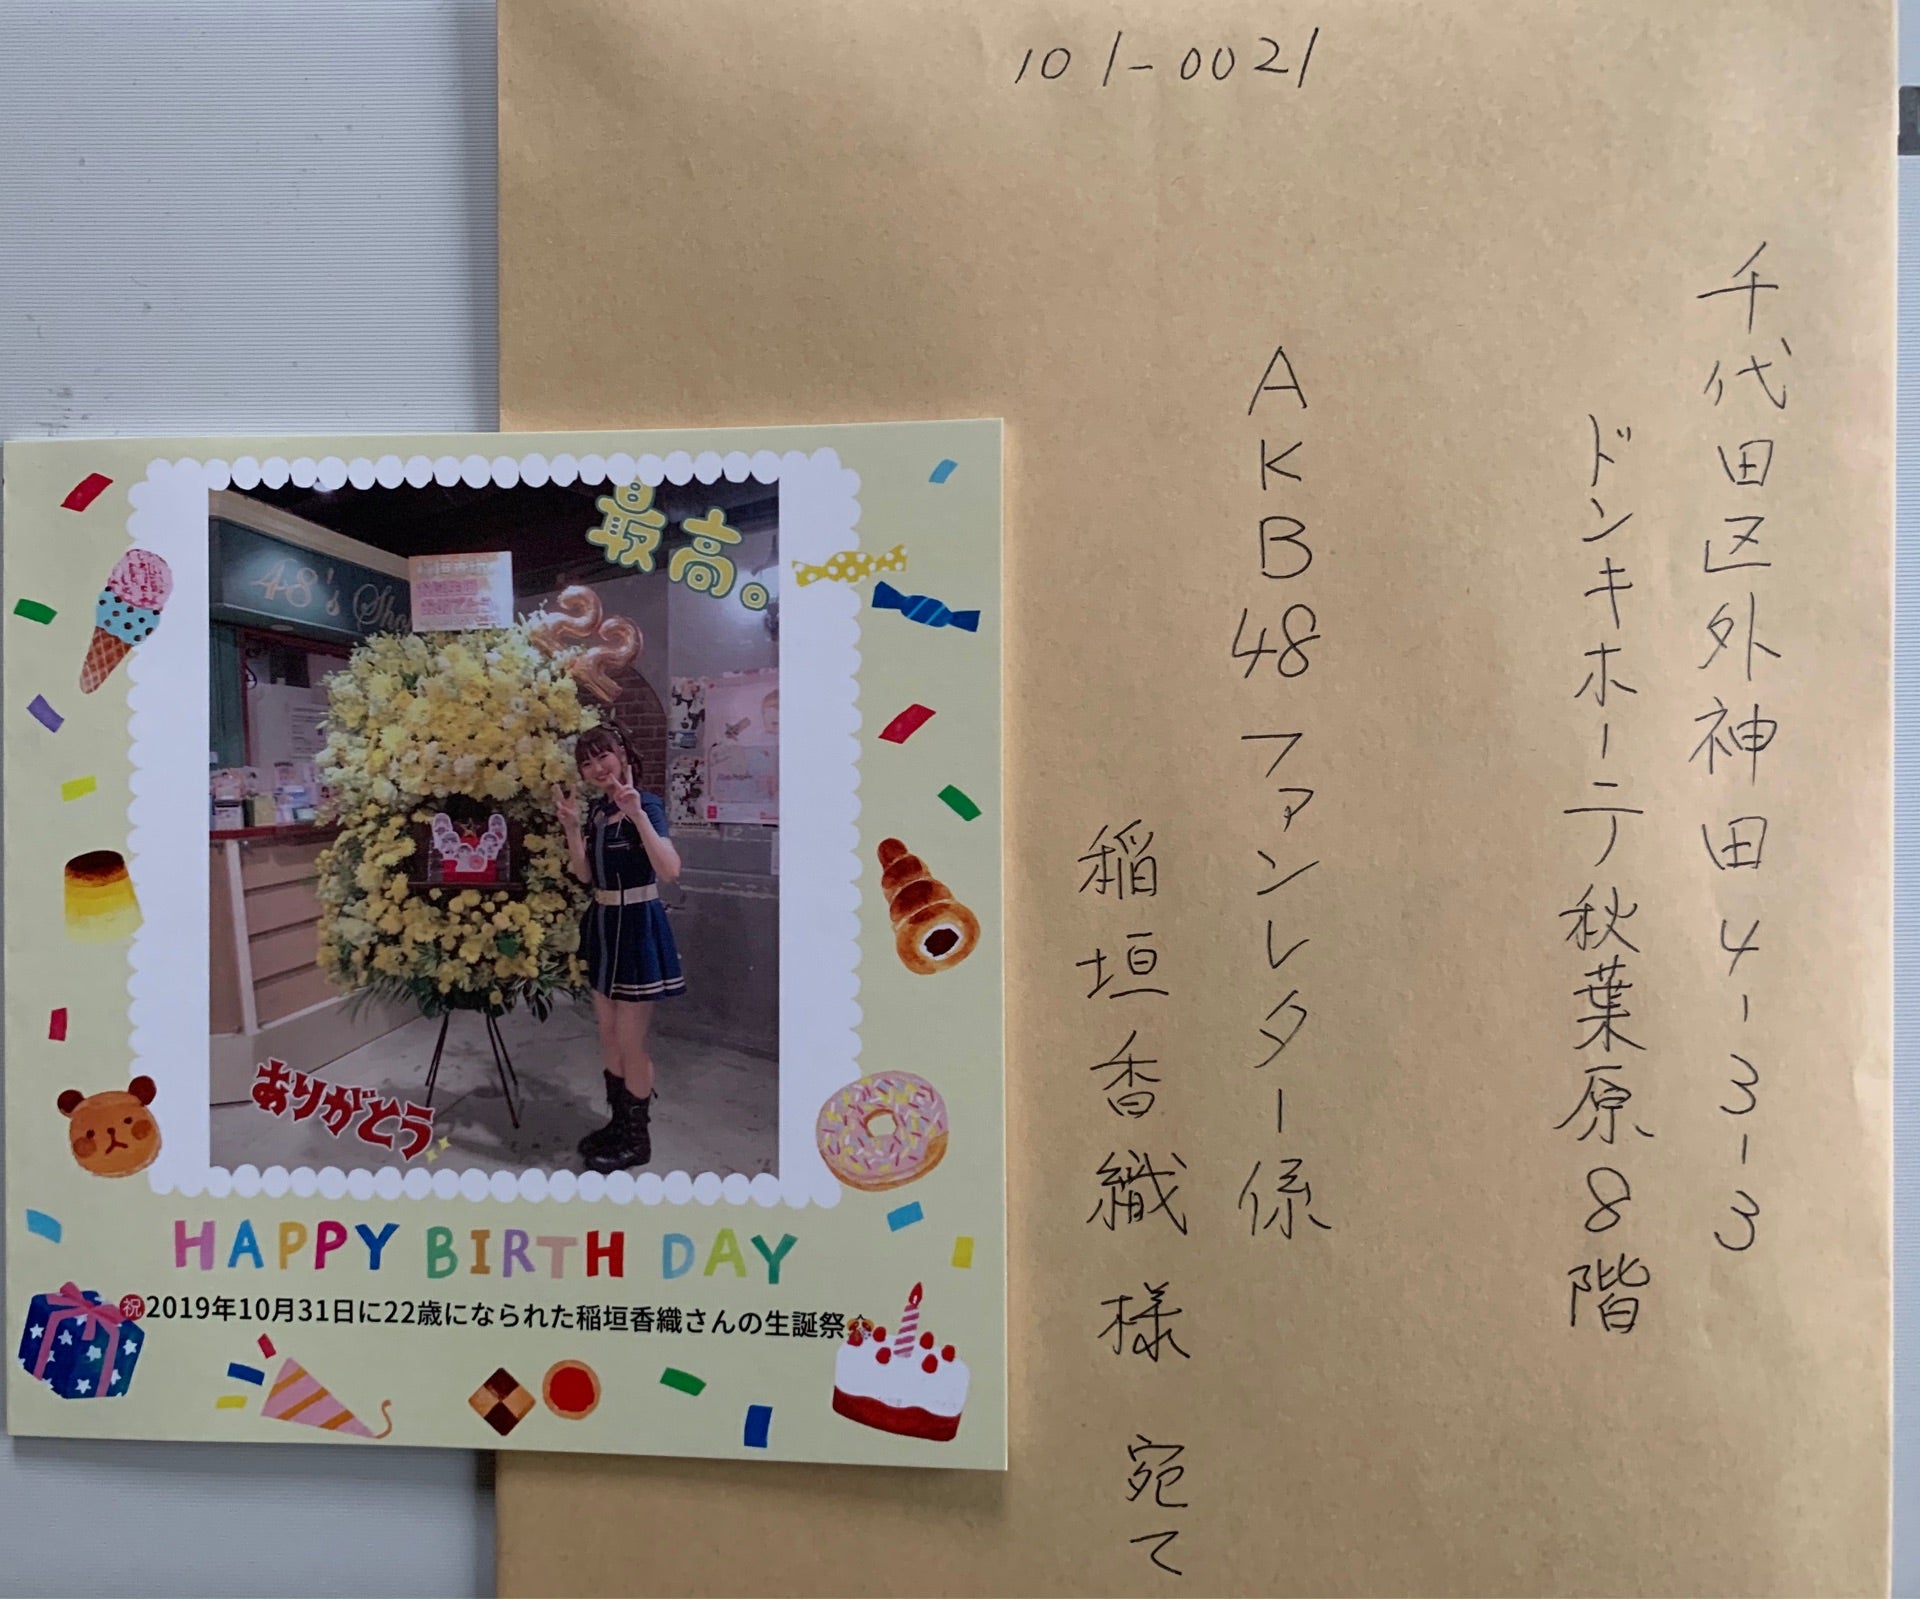 101-0021
千代田区外神田4-3-3
ドンキホーテ秋葉原8階
AKB48ファンレター係
稲垣香織様 宛て
最高。
48's Sho
22
ありがとう
HAPPY BIRTH DAY
祝2019年10月31日に22歳になられた稲垣香織さんの生誕祭